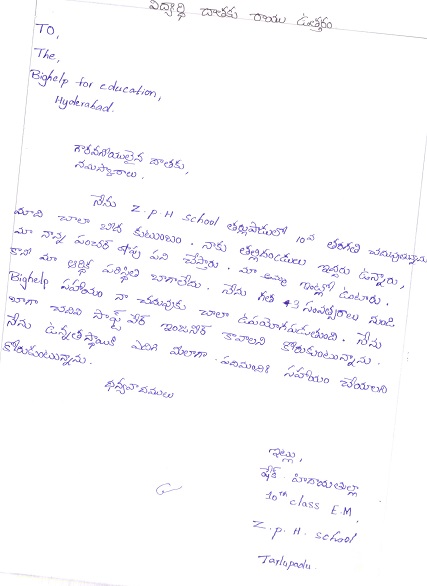 విద్యార్థి దాతకు రాయు ఉత్తరం
TO,
The,
Bighelp for education,
Hyderabad.
గౌరవనీయులైన దాతకు,
నమస్కారాలు.
నేను Z.P.H school తర్లుపాడులో 10వ తరగతి చదువుతున్నాను
మాది చాలా బీద కుటుంబం. నాకు తల్లిదండ్రులు ఇద్దరు ఉన్నారు,
మా నాన్న పంచర్ షాపు పని చేస్తారు. మా అమ్మ ఇంట్లో ఉంటారు.
కాని మా ఆర్థిక పరిస్థితి బాగాలేదు. నేను గత 3 సంవత్సరాల నుండి
Bighelp సహాయం నా చదువుకు చాలా ఉపయోగపడుతుంది. నేను
బాగా చదివి సాఫ్ట్ వేర్ ఇంజనీర్ కావాలని కోరుకుంటున్నాను.
నేను ఉన్నతస్థాయికి ఎదిగి మీలాగా పదిమందికి సహాయం చేయాలని
కోరుకుంటున్నాను.
ధన్యవాదములు
ఇట్లు,
షేక్. హిదాయతుల్లా
10th class E.M,
Z.P.H. school
Tarlupadu.